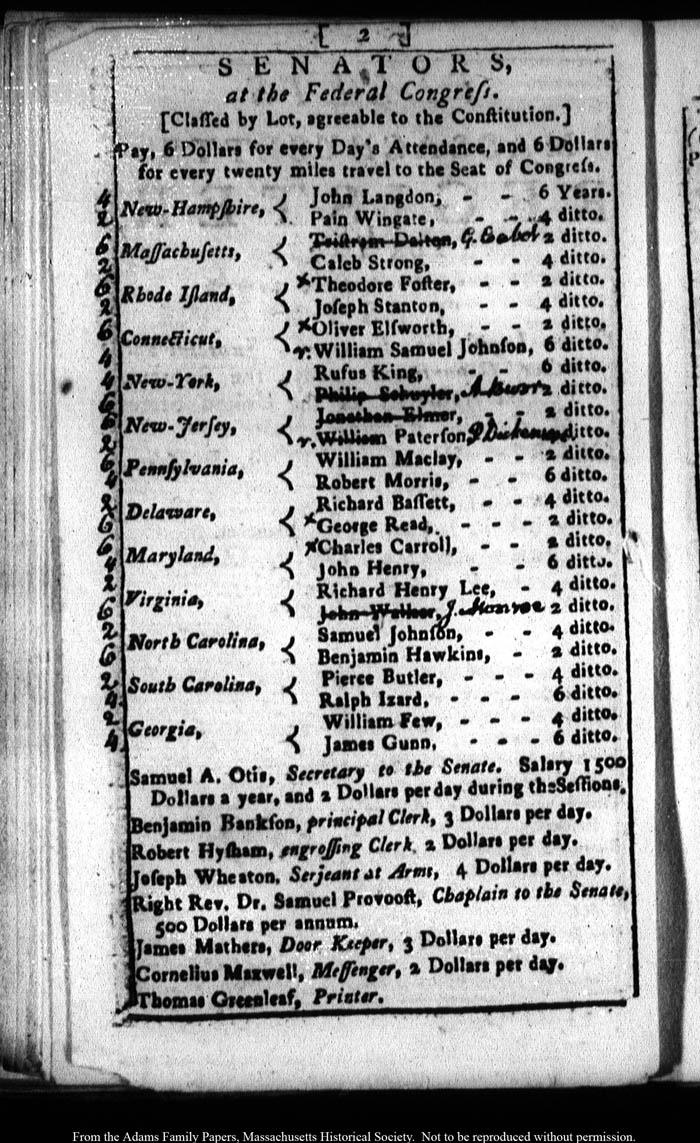 [ 2 ]
SENATORS,
at the Federal Congreſs.
[Claſſed by Lot, agreeable to the Conſtitution.]
Pay, 6 Dollars for every Day's Attendance, and 6 Dollars
for every twenty miles travel to the Seat of Congreſs.
4 New-Hampſhire, { John Langdon, - - 6 Years.
2 Pain Wingate, - - 4 ditto.
6 Maſſachuſetts, { Triſtram Dalton, G. Cabot 2 ditto.
2 Caleb Strong, - - 4 ditto.
6 Rhode Iſland, { x Theodore Foſter, - - 2 ditto.
2 Joſeph Stanton, - - 4 ditto.
6 Connecticut, { x Oliver Elſworth, - - 2 ditto.
4 r. William Samuel Johnſon, 6 ditto.
4 New-York, { Rufus King, - - 6 ditto.
6 Philip Schuyler, A. Burr 2 ditto.
6 New-Jerſey, { Jonathan Elmer, - - 2 ditto.
2 r. William Paterſon, P Dickenson ditto.
6 Pennſylvania, { William Maclay, - - 2 ditto.
4 Robert Morris, - - 6 ditto.
2 Delaware, { Richard Baſſett, - - 4 ditto.
6 x George Read, - - - 2 ditto.
6 Maryland, { x Charles Carroll, - - 2 ditto.
4 John Henry, - - 6 ditto.
2 Virginia, { Richard Henry Lee, - 4 ditto.
6 John Walker, J. Monroe 2 ditto.
2 North Carolina, { Samuel Johnſon, - - 4 ditto.
6 Benjamin Hawkins, - 2 ditto.
2 South Carolina, { Pierce Butler, - - - 4 ditto.
4 Ralph Izard, - - - 6 ditto.
2 Georgia, { William Few, - - - 4 ditto.
4 James Gunn, - - - 6 ditto.
Samuel A. Otis, Secretary to the Senate. Salary 1500
Dollars a year, and 2 Dollars per day during the Seſſions.
Benjamin Bankſon, principal Clerk, 3 Dollars per day.
Robert Hyſham, engroſſing Clerk, 2 Dollars per day.
Joſeph Wheaton, Serjeant at Arms, 4 Dollars per day.
Right Rev. Dr. Samuel Provooſt, Chaplain to the Senate,
500 Dollars per annum.
James Mathers, Door Keeper, 3 Dollars per day.
Cornelius Maxwell, Meſſenger, 2 Dollars per day.
Thomas Greenleaf, Printer.
From the Adams Family Papers, Massachusetts Historical Society. Not to be reproduced without permission.